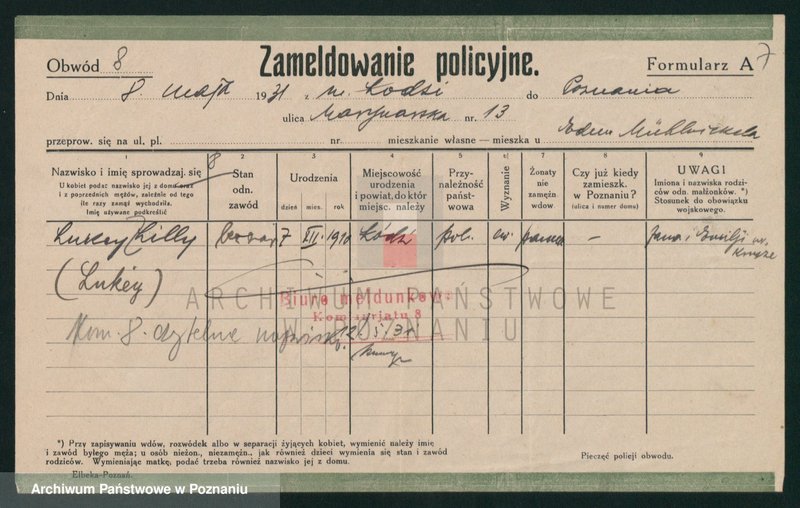 Obwód 8
Zameldowanie policyjne.
Formularz A 7
Dnia 8. maja 1931 z m. Łodzi do Poznania
ulica Marynarska nr. 13
przeprow. się na ul. pl. nr. mieszkanie własne — mieszka u
1 2 3 4 5 6 7 8 9
Nazwisko i imię sprowadzaj. się 8
U kobiet podać nazwisko jej z domu oraz
i z poprzednich mężów, zależnie od tego
ile razy zamąż wychodziła.
Imię używane podkreślić
Stan
odn.
zawód
Urodzenia
dzień mies. rok
Miejscowość
urodzenia
i powiat, do któr
miejsc. należy
Przy-
należność
państ-
wowa
Wyznanie
Żonaty
nie
zamężn
wdów.
Czy już kiedy
zamieszk.
w Poznaniu?
(ulica i numer domu)
UWAGI
Imiona i nazwiska rodzi-
ców odn. małżonków. *)
Stosunek do obowiązku
wojskowego.
7 III 1910 Łódź pol. ew. panna — Jana i Emilji
(Lukey)
ARCHIWUM PAŃSTWOWE
W POZNANIU
Biuro meldunkowe
Komisarjatu 8
Kom. 8. czytelne
12/5/31
*) Przy zapisywaniu wdów, rozwódek albo w separacji żyjących kobiet, wymienić należy imię
i zawód byłego męża; u osób nieżon., niezamężn., jak również dzieci wymienia się stan i zawód
rodziców. Wymieniając matkę, podać trzeba również nazwisko jej z domu.
Pieczęć policji obwodu.
Elbeka-Poznań.
Archiwum Państwowe w Poznaniu